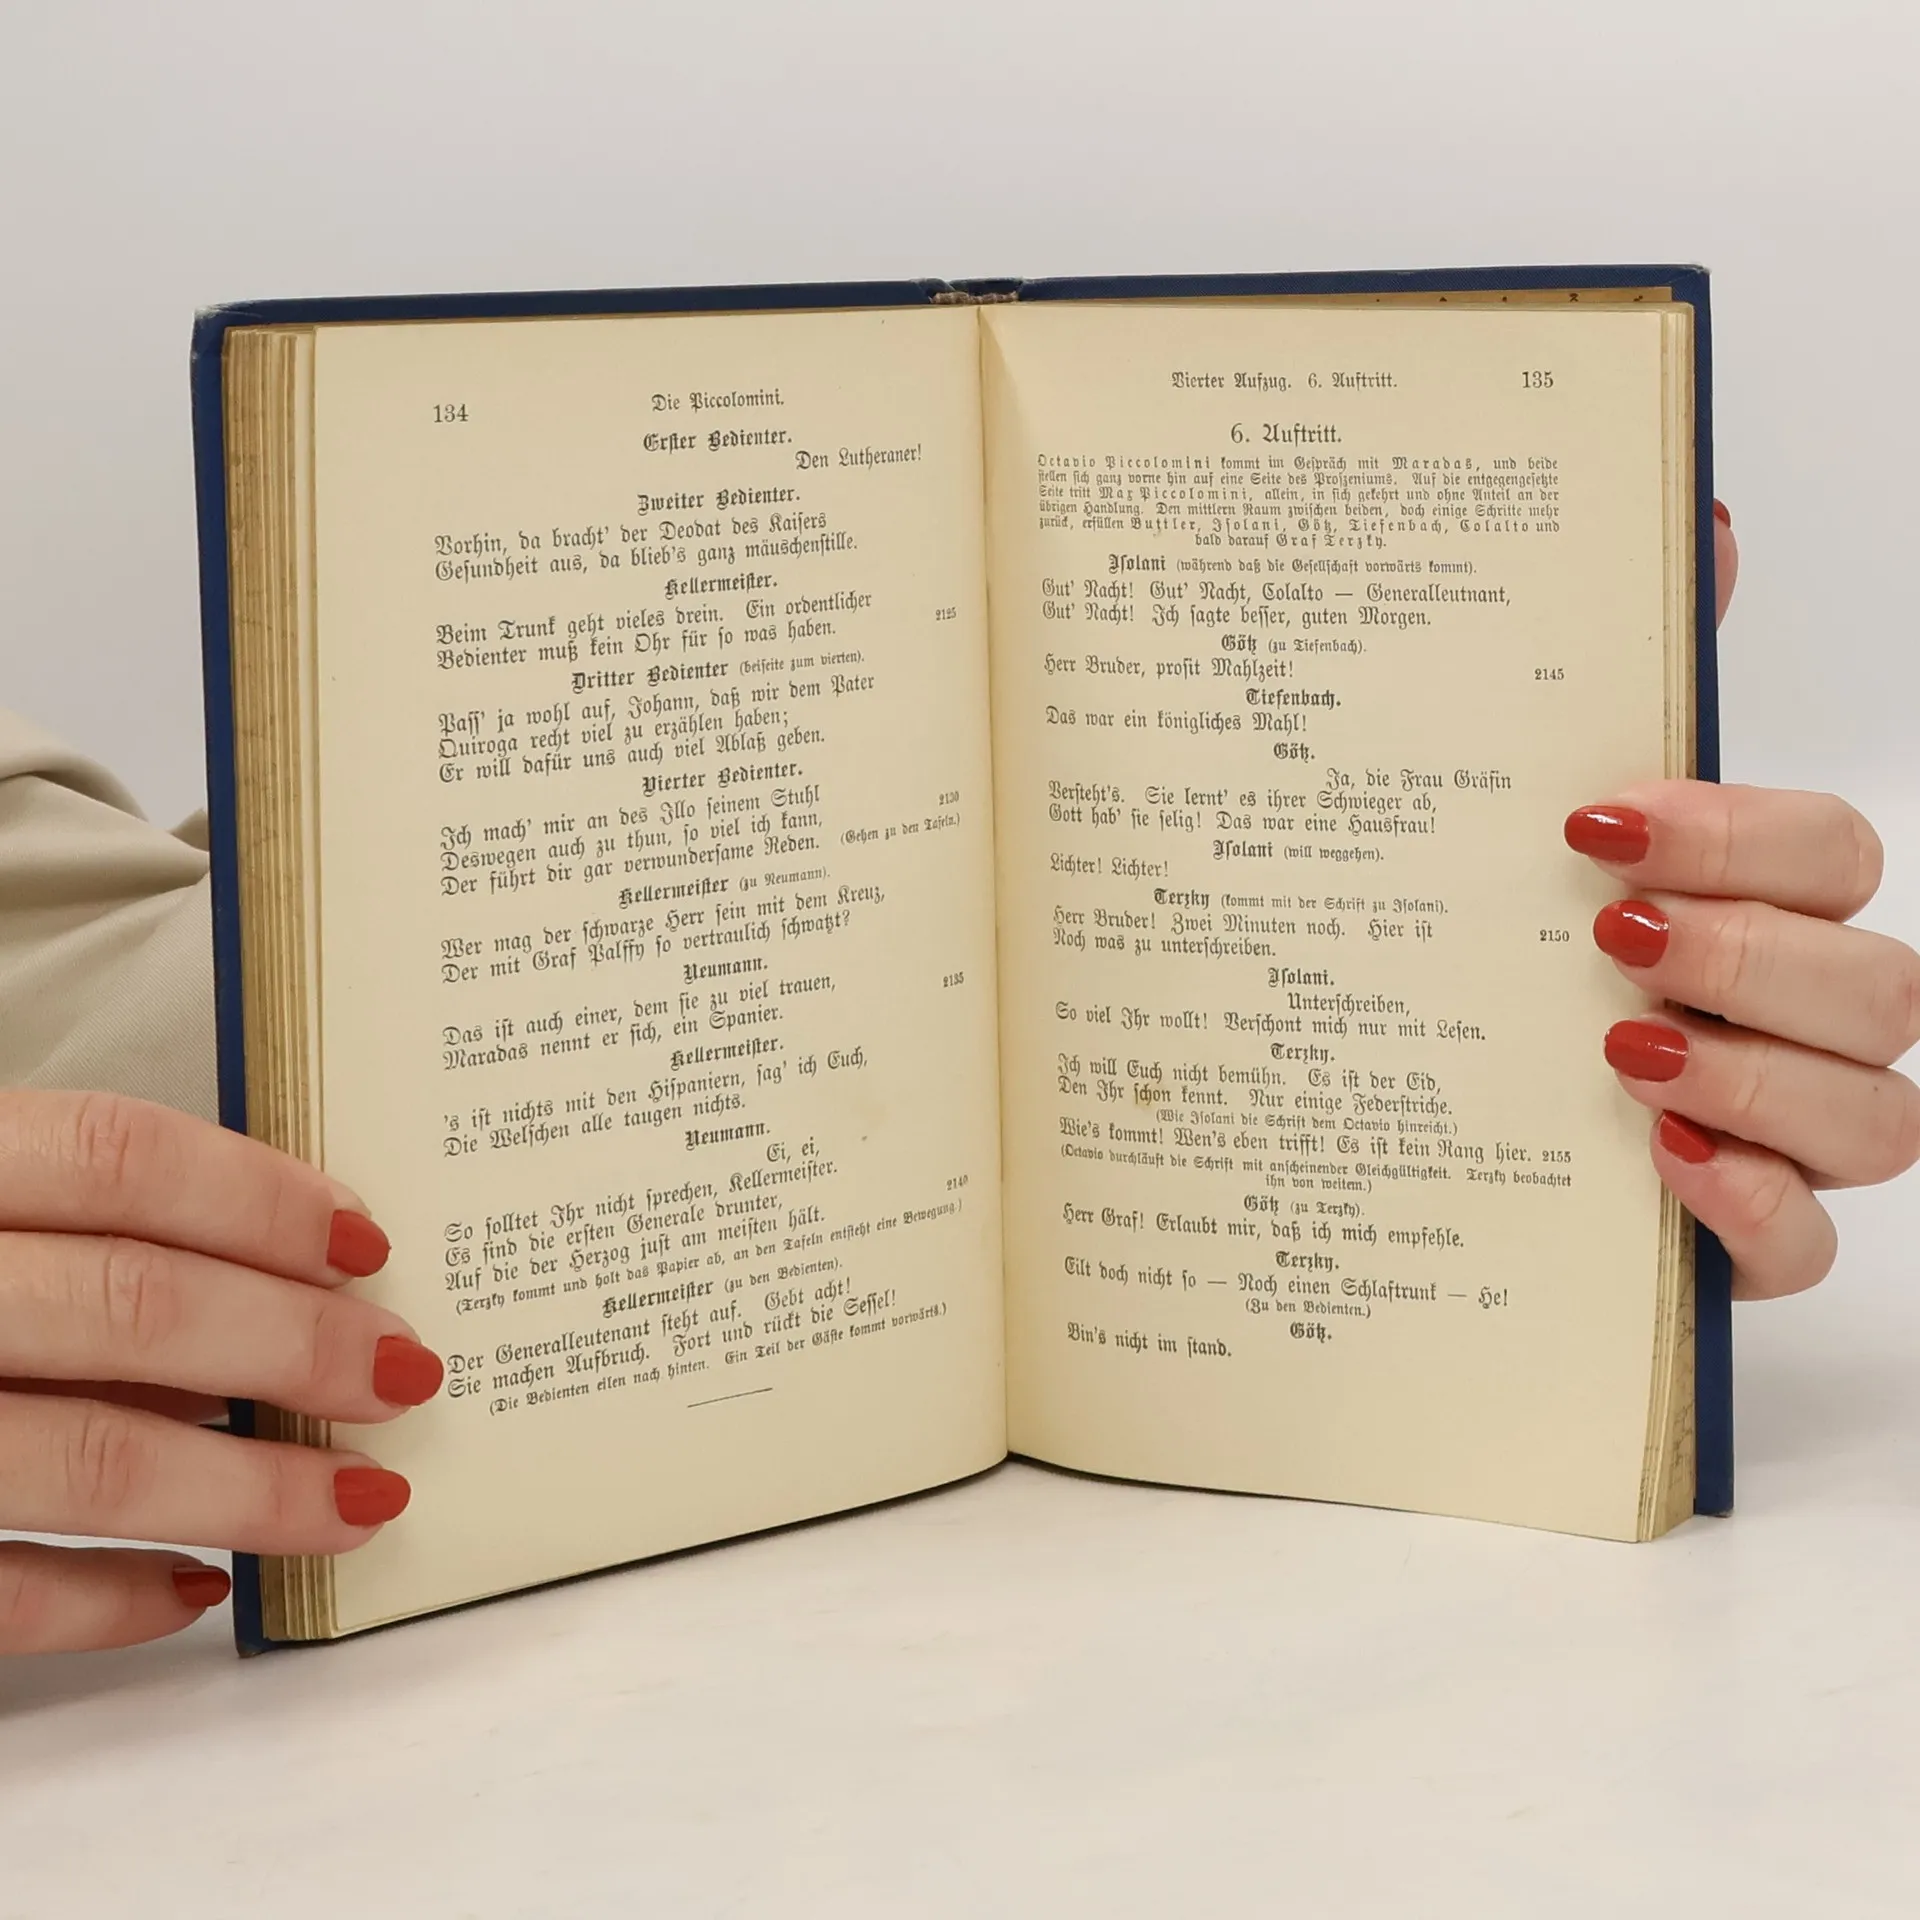 134
Die Piccolomini.
Erſter Bedienter.
Den Lutheraner!
Zweiter Bedienter.
Vorhin, da bracht' der Deodat des Kaiſers
Geſundheit aus, da blieb's ganz mäuschenſtille.
Kellermeiſter.
Beim Trunk geht vieles drein. Ein ordentlicher 2125
Bedienter muß kein Ohr für ſo was haben.
Dritter Bedienter (beiſeite zum vierten).
Paſſ' ja wohl auf, Johann, daß wir dem Pater
Quiroga recht viel zu erzählen haben;
Er will dafür uns auch viel Ablaß geben.
Vierter Bedienter.
Ich mach' mir an des Illo ſeinem Stuhl 2130
Deswegen auch zu thun, ſo viel ich kann,
Der führt dir gar verwunderſame Reden. (Gehen zu den Tafeln.)
Kellermeiſter (zu Neumann).
Wer mag der ſchwarze Herr ſein mit dem Kreuz,
Der mit Graf Palffy ſo vertraulich ſchwatzt?
Neumann.
Das iſt auch einer, dem ſie zu viel trauen, 2135
Maradas nennt er ſich, ein Spanier.
Kellermeiſter.
's iſt nichts mit den Hiſpaniern, ſag' ich Euch,
Die Welſchen alle taugen nichts.
Neumann.
Ei, ei,
So ſolltet Ihr nicht ſprechen, Kellermeiſter.
Es ſind die erſten Generale drunter, 2140
Auf die der Herzog juſt am meiſten hält.
(Terzky kommt und holt das Papier ab, an den Tafeln entſteht eine Bewegung.)
Kellermeiſter (zu den Bedienten).
Der Generalleutenant ſteht auf. Gebt acht!
Sie machen Aufbruch. Fort und rückt die Seſſel!
(Die Bedienten eilen nach hinten. Ein Teil der Gäſte kommt vorwärts.)
Vierter Aufzug. 6. Auftritt.
135
6. Auftritt.
Octavio Piccolomini kommt im Geſpräch mit Maradas, und beide
ſtellen ſich ganz vorne hin auf eine Seite des Proſzeniums. Auf die entgegengeſetzte
Seite tritt Max Piccolomini, allein, in ſich gekehrt und ohne Anteil an der
übrigen Handlung. Den mittlern Raum zwiſchen beiden, doch einige Schritte mehr
zurück, erfüllen Buttler, Iſolani, Götz, Tiefenbach, Colalto und
bald darauf Graf Terzky.
Iſolani (während daß die Geſellſchaft vorwärts kommt).
Gut' Nacht! Gut' Nacht, Colalto — Generalleutnant,
Gut' Nacht! Ich ſagte beſſer, guten Morgen.
Götz (zu Tiefenbach).
Herr Bruder, proſit Mahlzeit! 2145
Tiefenbach.
Das war ein königliches Mahl!
Götz.
Ja, die Frau Gräfin
Verſteht's. Sie lernt' es ihrer Schwieger ab,
Gott hab' ſie ſelig! Das war eine Hausfrau!
Iſolani (will weggehen).
Lichter! Lichter!
Terzky (kommt mit der Schrift zu Iſolani).
Herr Bruder! Zwei Minuten noch. Hier iſt 2150
Noch was zu unterſchreiben.
Iſolani.
Unterſchreiben,
So viel Ihr wollt! Verſchont mich nur mit Leſen.
Terzky.
Ich will Euch nicht bemühn. Es iſt der Eid,
Den Ihr ſchon kennt. Nur einige Federſtriche.
(Wie Iſolani die Schrift dem Octavio hinreicht.)
Wie's kommt! Wen's eben trifft! Es iſt kein Rang hier. 2155
(Octavio durchläuft die Schrift mit anſcheinender Gleichgültigkeit. Terzky beobachtet
ihn von weitem.)
Götz (zu Terzky).
Herr Graf! Erlaubt mir, daß ich mich empfehle.
Terzky.
Eilt doch nicht ſo — Noch einen Schlaftrunk — He!
(Zu den Bedienten.)
Götz.
Bin's nicht im ſtand.